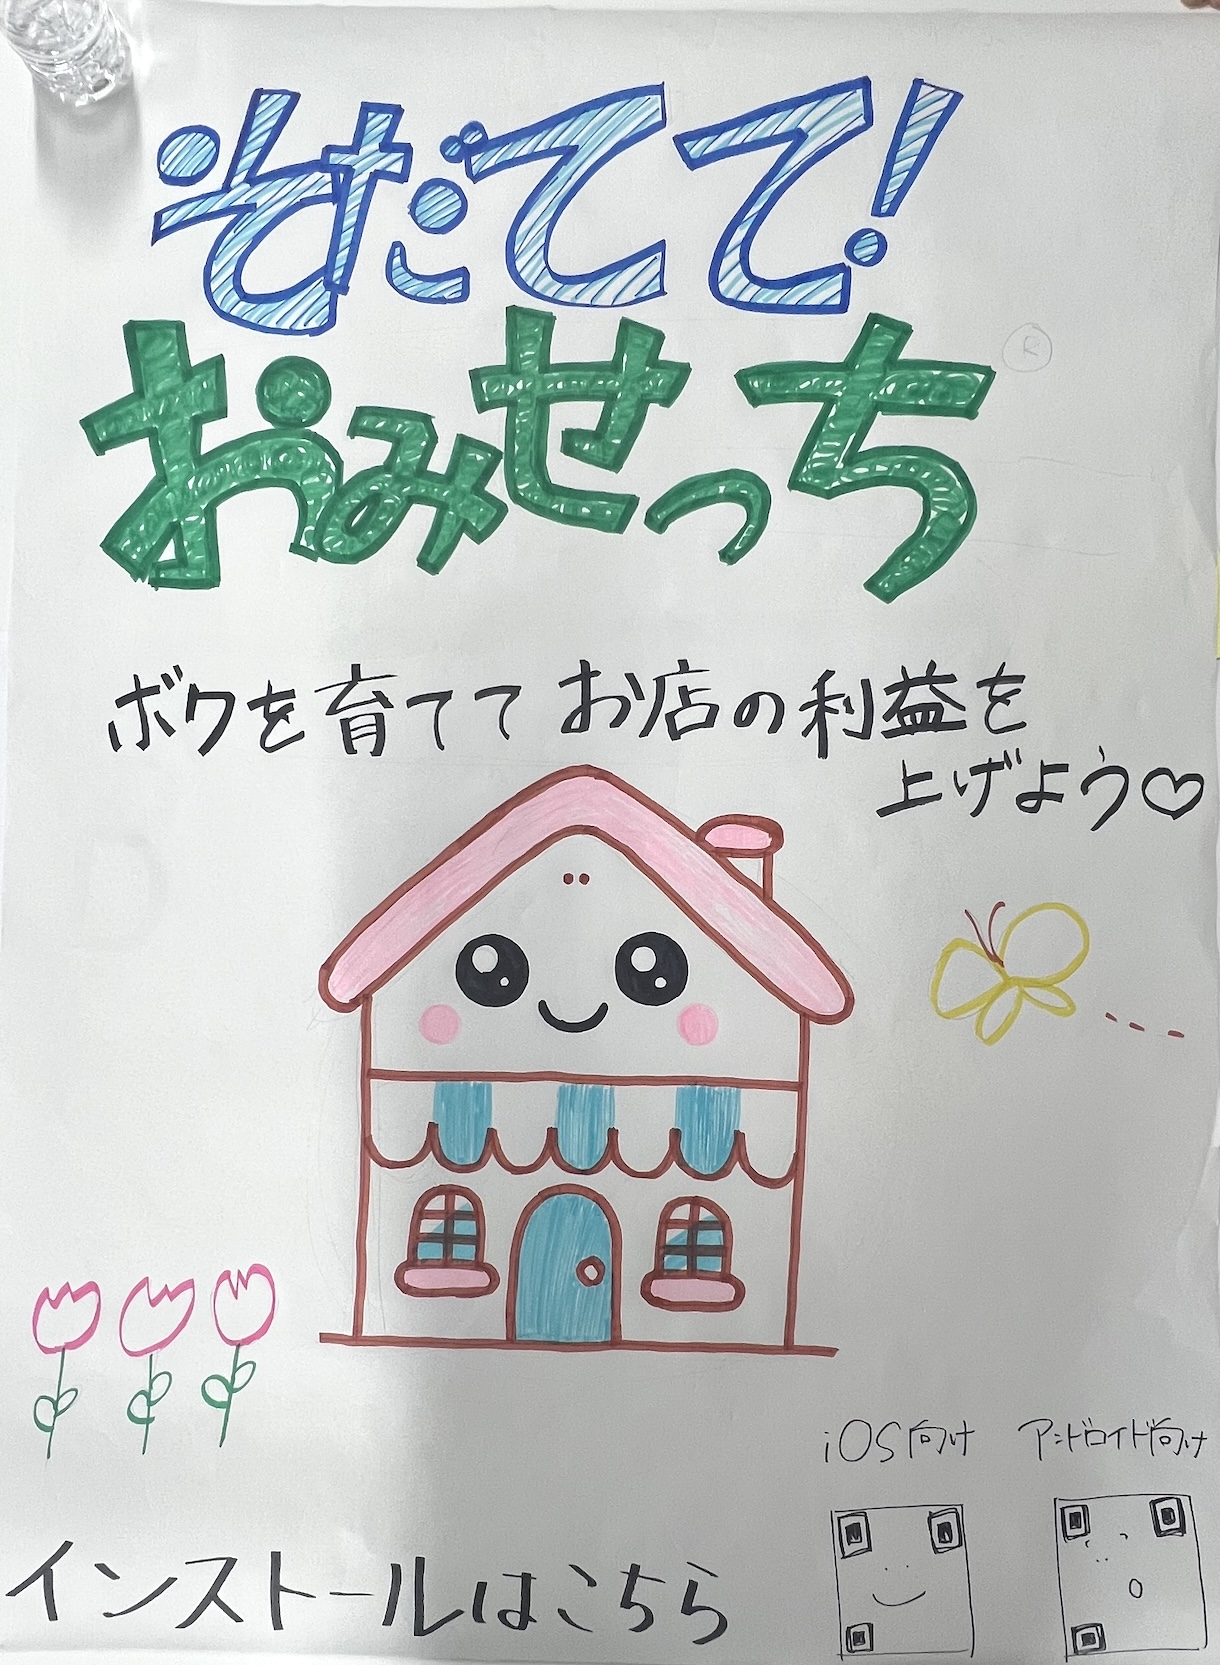 そだてて!
おみせっち
®
ボクを育てて お店の利益を
上げよう♡
iOS向け
アンドロイド向け
インストールはこちら